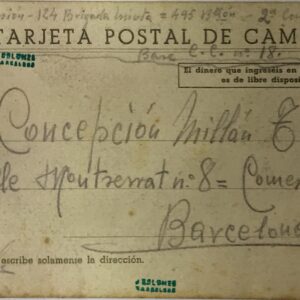 sión - 124 Brigada Mixta = 495 Bllón - 2ª Co
TARJETA POSTAL DE CAM
Base C.C. nº 18.
COLOMES
BARCELONA
El dinero que ingreséis en
es de libre disposi
Concepción Millán T
lle Montserrat nº 8 = Comer
Barcelona
escribe solamente la dirección.
COLOMES
BARCELONA